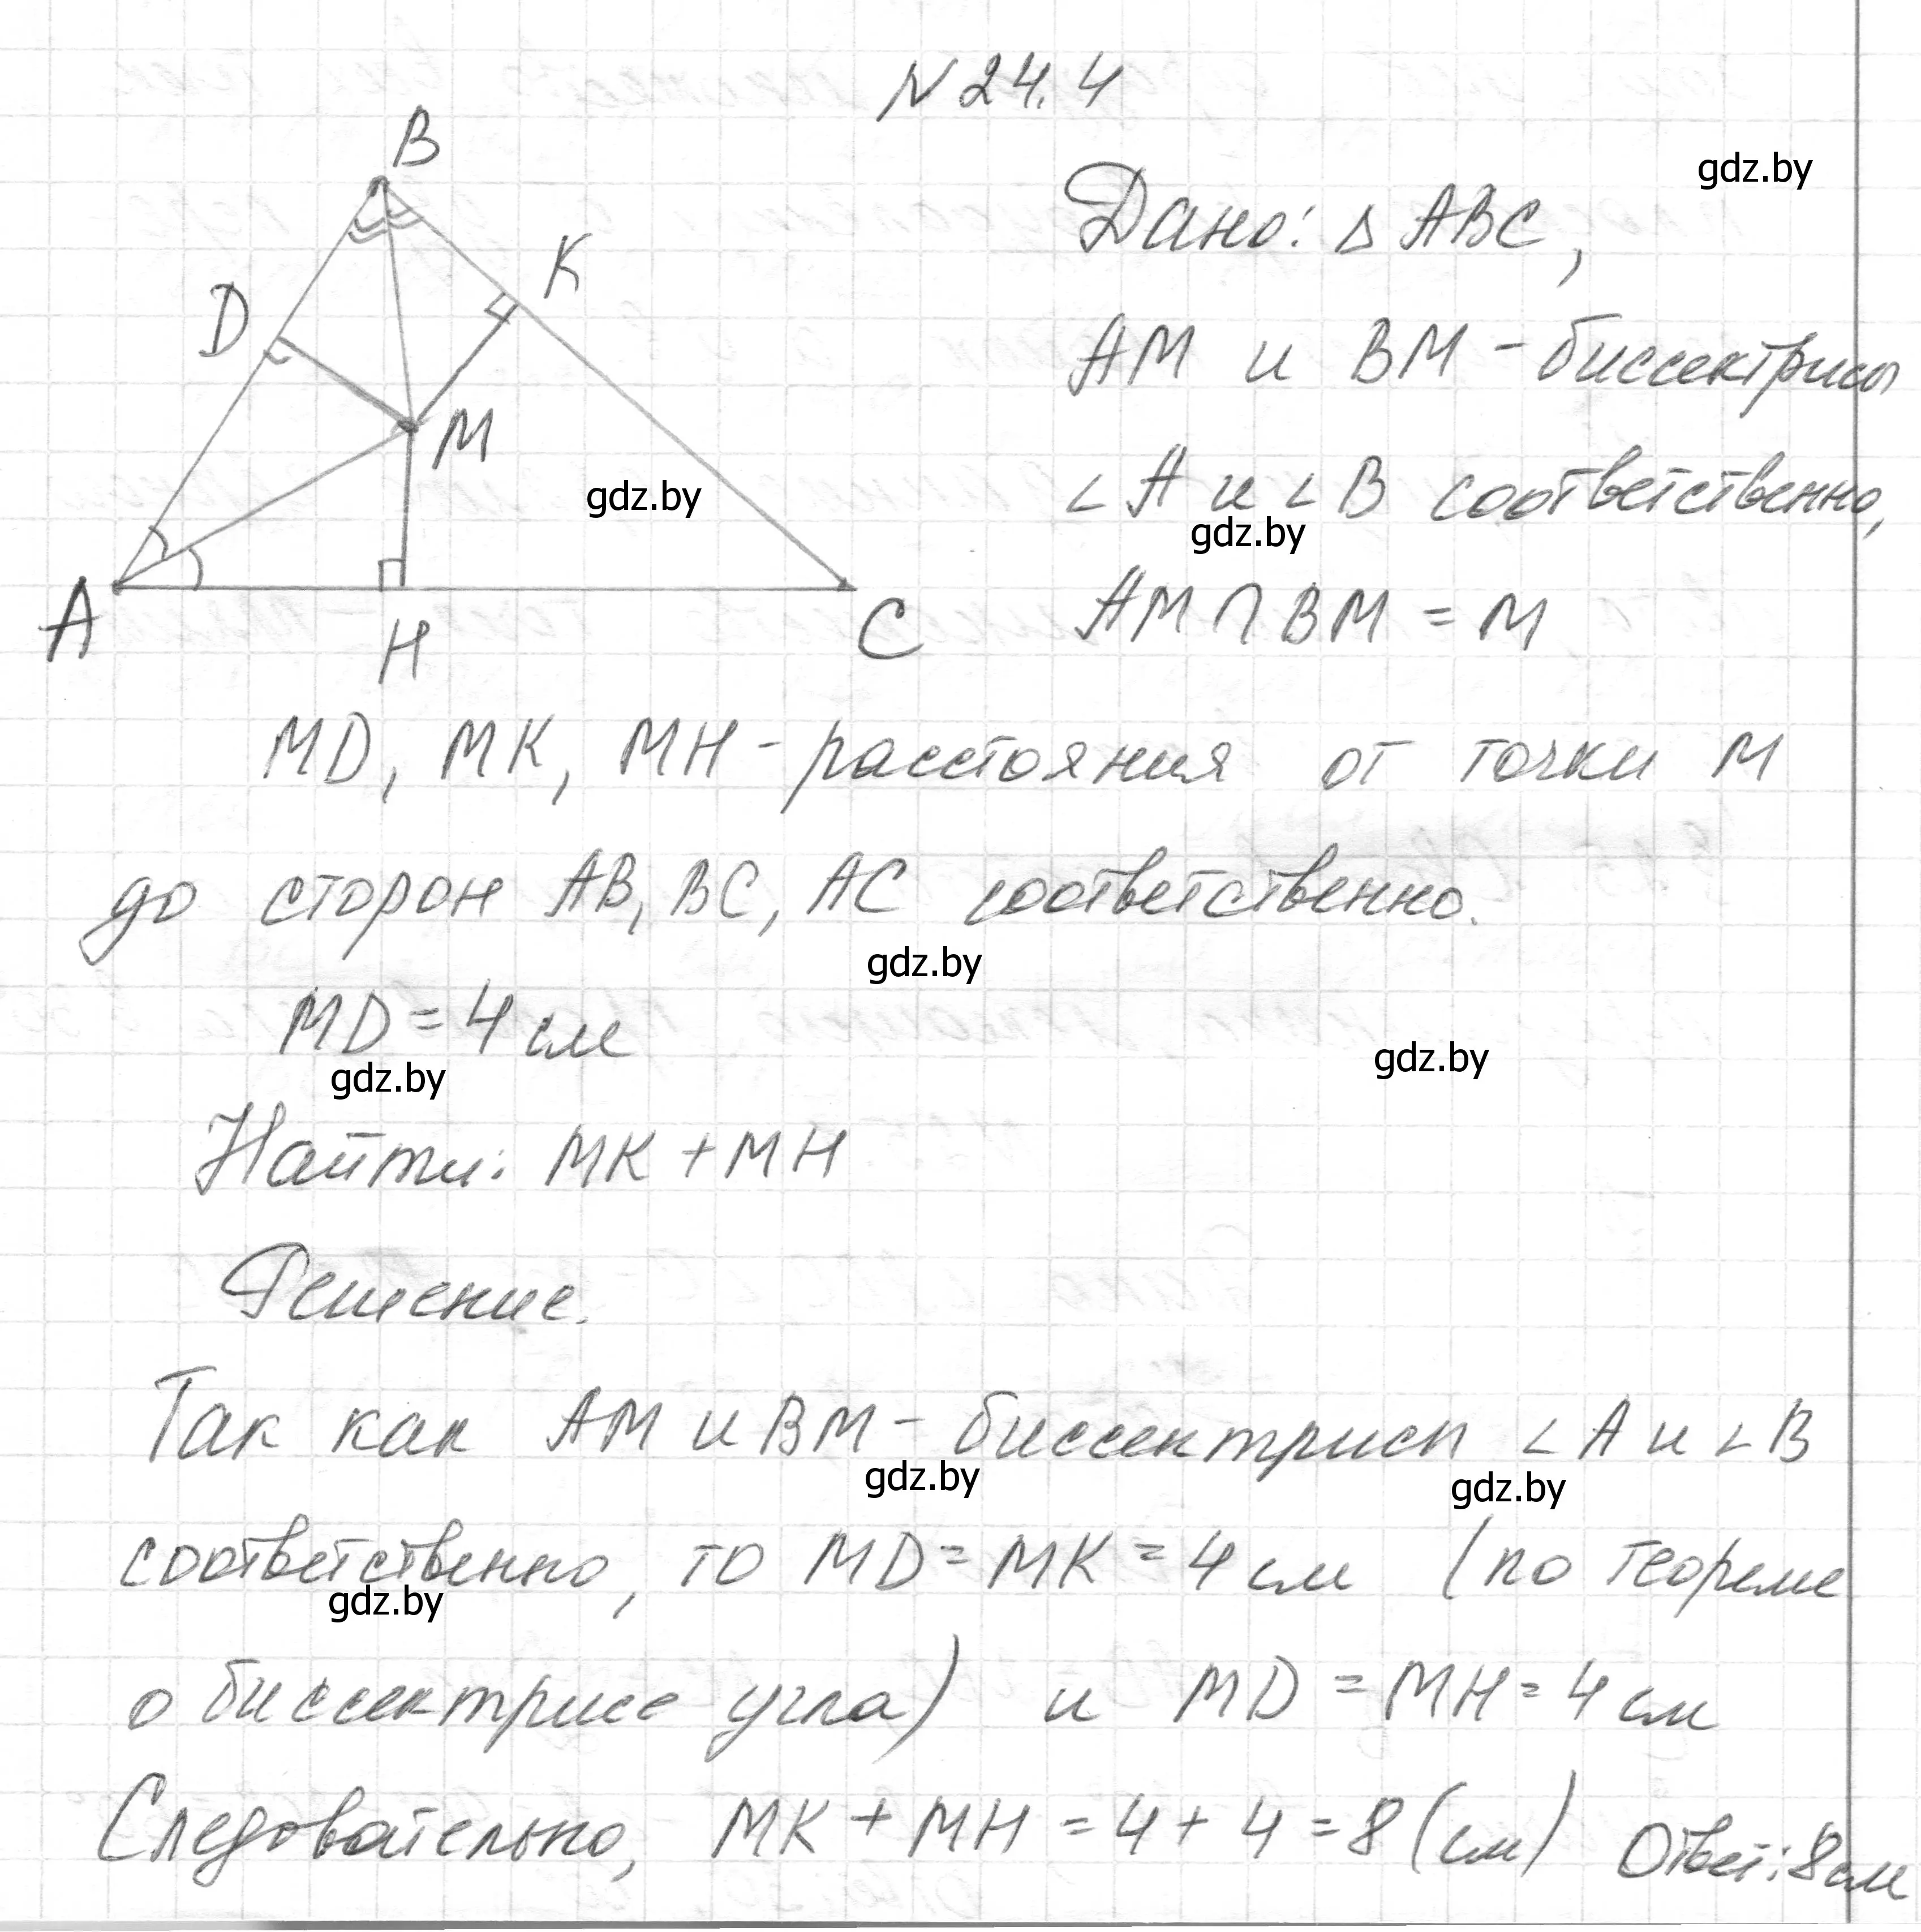 N 24.4
B
gdz.by
Дано: Δ ABC,
K
D
AM и BM - биссектрисы
M
∠A и ∠B соответственно,
gdz.by
gdz.by
A
H
C
AM ∩ BM = M
MD, MK, MH - расстояния от точки M
до сторон AB, BC, AC соответственно.
gdz.by
MD = 4 см
gdz.by
gdz.by
Найти: MK + MH
Решение.
Так как AM и BM - биссектрисы ∠A и ∠B
gdz.by
gdz.by
соответственно, то MD = MK = 4 см (по теореме
gdz.by
о биссектрисе угла) и MD = MH = 4 см
Следовательно, MK + MH = 4 + 4 = 8 (см) Ответ: 8 см